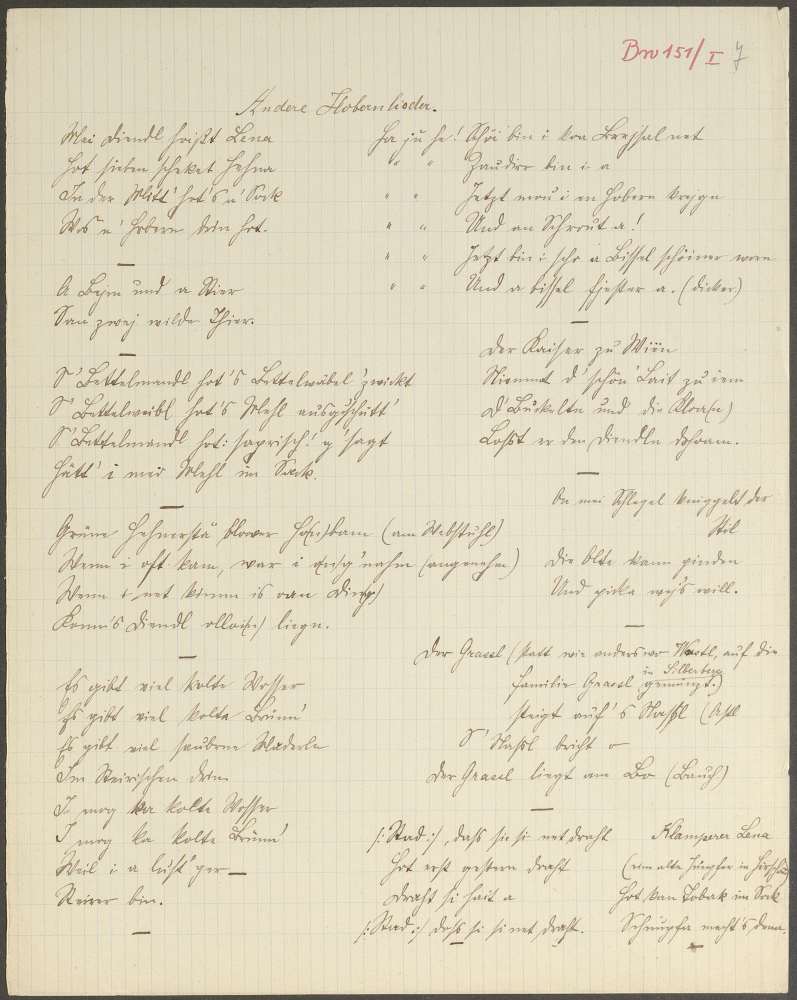 Bw 151/I 7
Andere Hobernlieder.
Mei Diendl heißt Lena
Hot sieben scheket Hehna
In der Mitt' hot's a' Sock
Wos a' Hobern drin hot.
—
A Bejm und a Stier
San zwej wilde Thier.
—
S' Bettelmandl hot's Bettelwabel 'zwickt
S' Bettelweibl hot's Mehl ausg'schütt'
S' Bettelmandl hot: saprisch! g'sagt
Hätt' i mei Mehl im Sack.
—
Grüne Hehnersta blower Ho(n)bam (am Webstuhl)
Wenn i oft kam, war i g'nehm (angenehm)
Wenn i net kimm is oan Ding
Konn's Diendl olloa(n) liegn.
—
Es gibt viel kolte Wosser
Es gibt viel kolta Brünn'
Es gibt viel saubrne Maderln
Im Steirischen drin.
I mog ka kolte Wosser
I mog ka kolte Brünn'
Weil i a lust'ger —
Steirer bin.
—
Ha ju he! Schöi bin i koa Brejsal net
" " Zaudirr bin i a
" " Jetzt mou i en Hobern krejgn
" " Und an Schrout a!
" " Jetzt bin i scho a Bissel schöiner worn
" " Und a bissel fjester a. (dicker)
—
Der Kaiser zu Wien
Nimmt d' schön' Lait zu iem
D' Buckelte und die Kloa(n)
Loßt er den Diendln dohoam.
—
On mei Schlegel knieggelt der
Stil
Die Olte kann pinden
Und picka wej's will.
—
Der Graasl (statt wie anderswo Wastl, auf die
Familie Graasl in Silberberg gemünzt.)
steigt auf's Nassl (Astl
S' Nassl bricht o
Der Graasl liegt am Bo (Bauch)
—
/: Stad :/, dass si si net draht
Hot erst gestern draht
Draht si hait a
/: Stad :/ dass si si net draht.
—
Klamperer Lena
(eine alte Jungfer in Hirsch
Hot kan Tobak im Sock
Schnupfa mecht's denn.
—